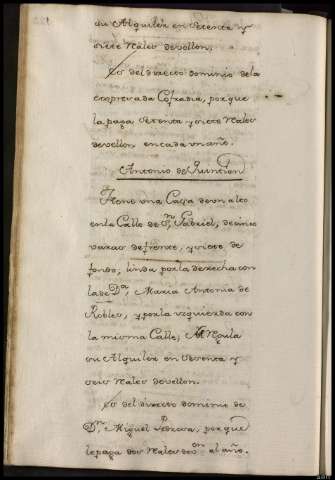 su Alquiler en setenta y
siete Reales de vellon.
Es del directo dominio de la
expresada Cofradia, porque
la paga setenta y siete Reales
de vellon en cada un año.
Antonio de Quintion
Tiene una Casa de un alto
en la Calle de Sn. Gabriel, de cinco
varas de frente, y siete de
fondo, linda por la derecha con
la de Da. Maria Antonia de
Robles, y por la izquierda con
la misma Calle, Regula
su Alquiler en setenta y
seis Reales de vellon.
Es del directo dominio de
Dn. Miguel Pedrosa, porque
le paga dos Reales de von. al año.